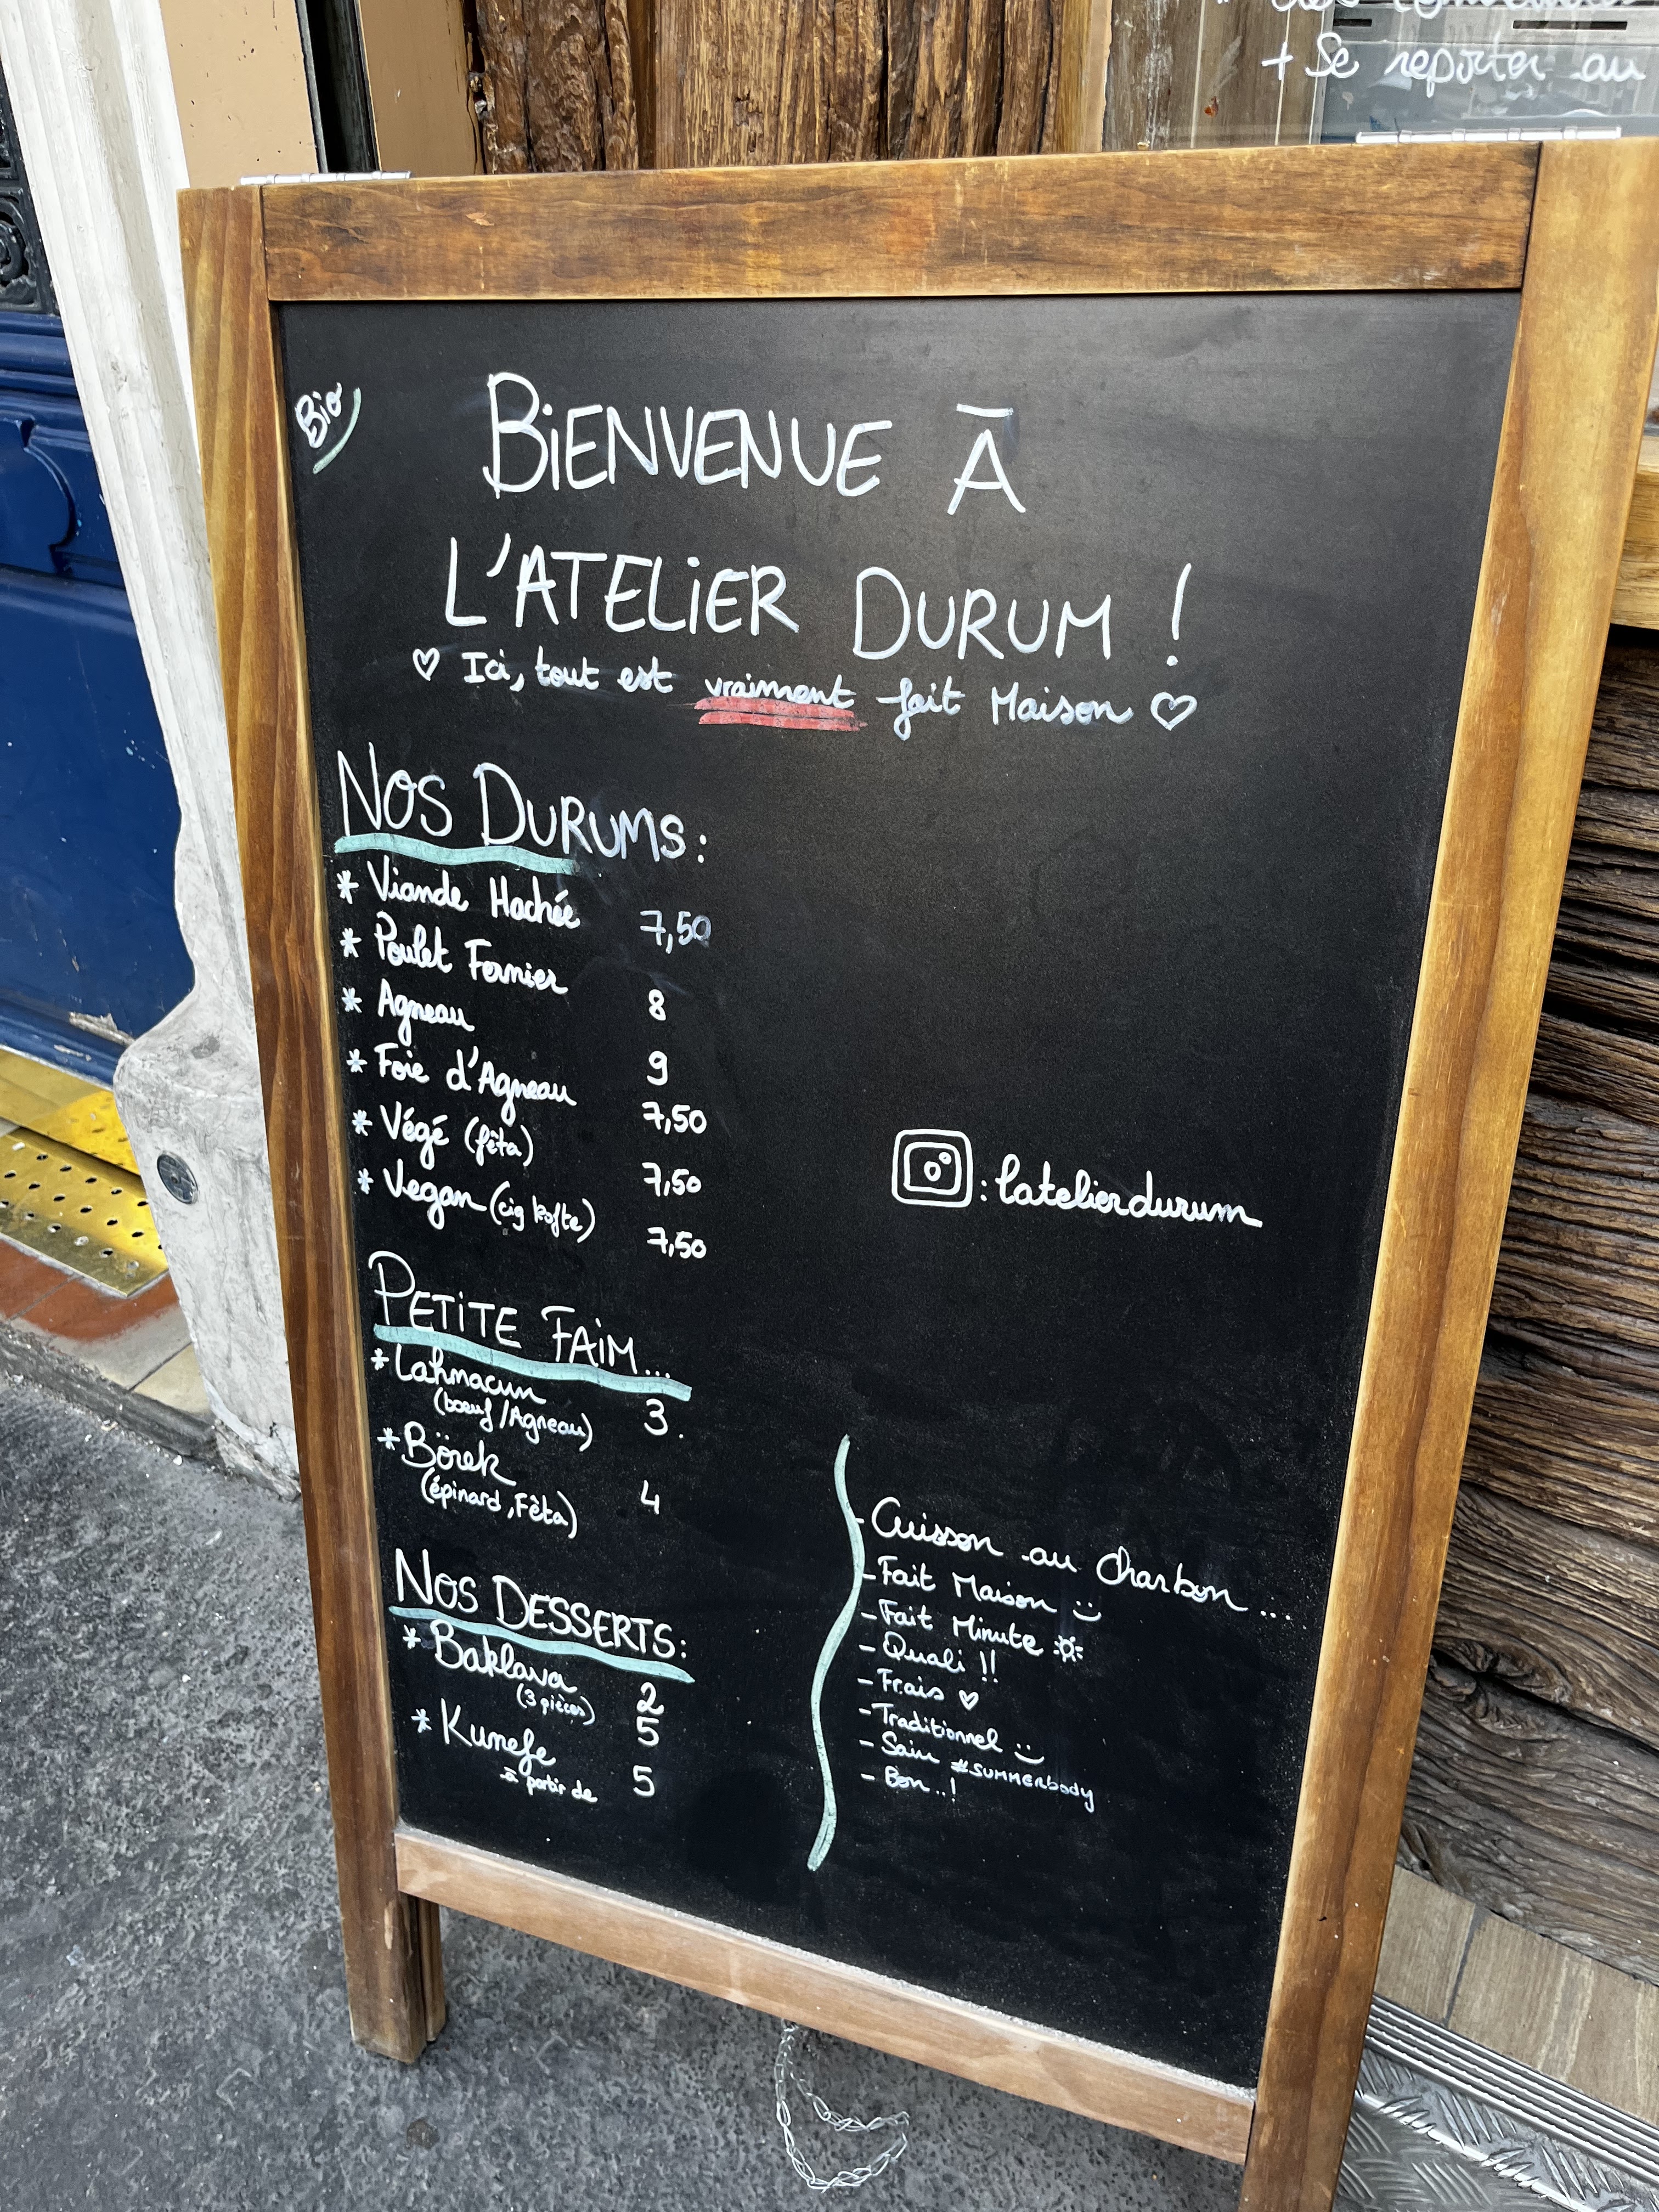 + Se reporter au
Bio
BiENVENUE Ā
L'ATELiER DURUM !
♡ Ici, tout est vraiment fait Maison ♡
NOS DURUMS:
* Viande Hachée 7,50
* Poulet Fermier 8
* Agneau 9
* Foie d'Agneau 7,50
* Végé (fêta) 7,50
* Vegan (cig kofte) 7,50
PETiTE FAiM...
* Lahmacun
(boeuf/Agneau) 3.
* Börek
(épinard, Fêta) 4
NOS DESSERTS:
* Baklava 2
(3 pièces) 5
* Kunefe
à partir de 5
: latelierdurum
- Cuisson au Charbon...
- Fait Maison :)
- Fait Minute
- Quali !!
- Frais ♡
- Traditionnel :)
- Sain #SUMMERbody
- Bon..!